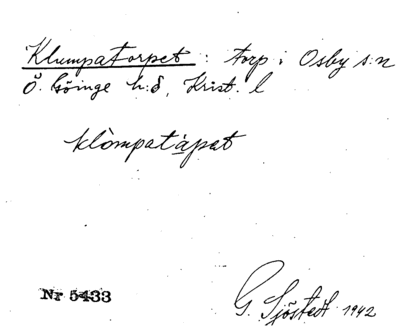 Klumpatorpet : torp i Osby s:n
Ö. Göinge h:d, Krist. l
klòmpatåpat
Nr 5433
G. Sjöstedt 1942